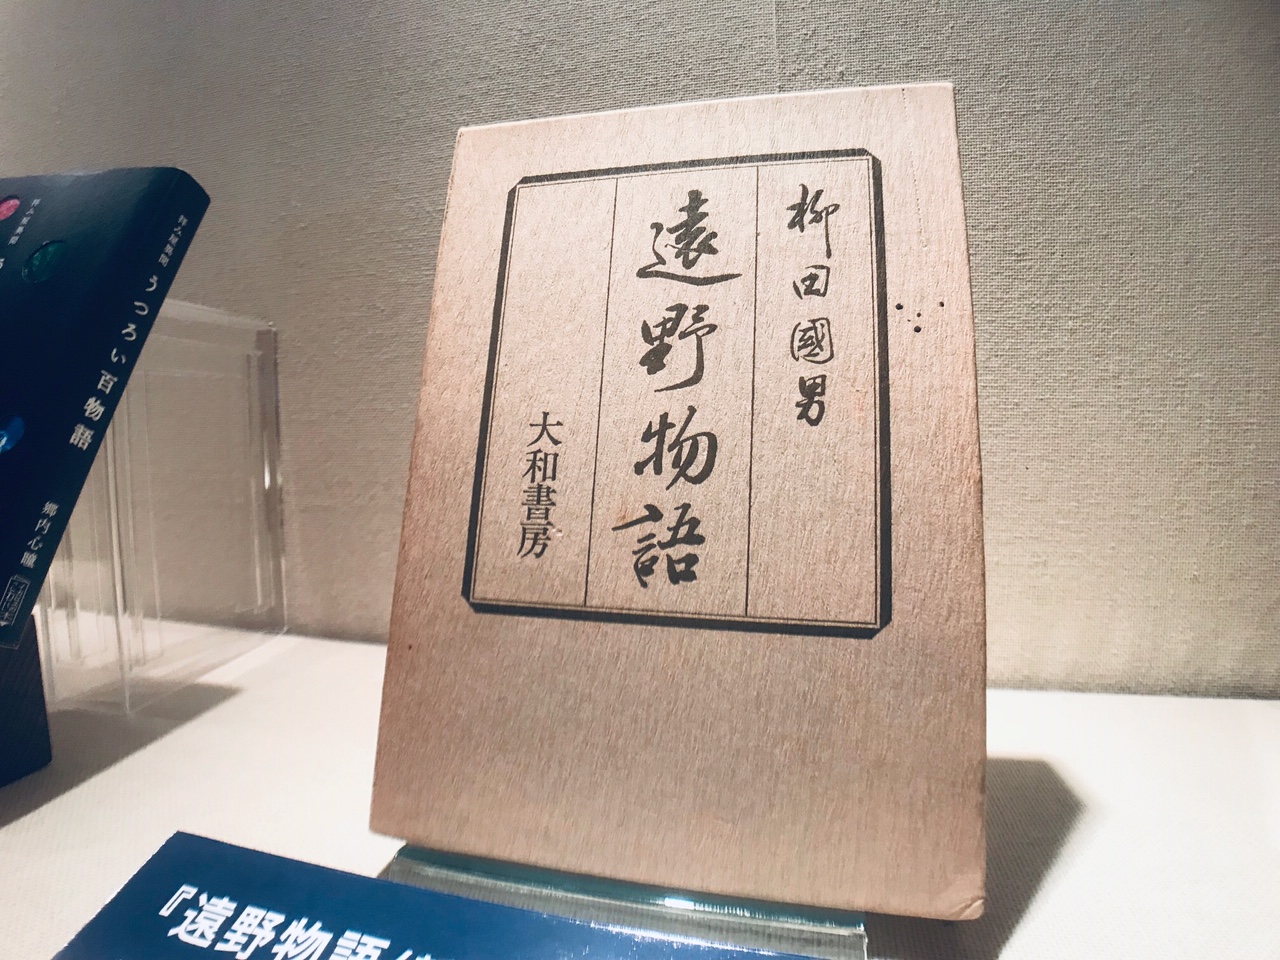 柳田國男
遠野物語
大和書房
拝み屋怪談 うつろい百物語
郷内心瞳
『遠野物語